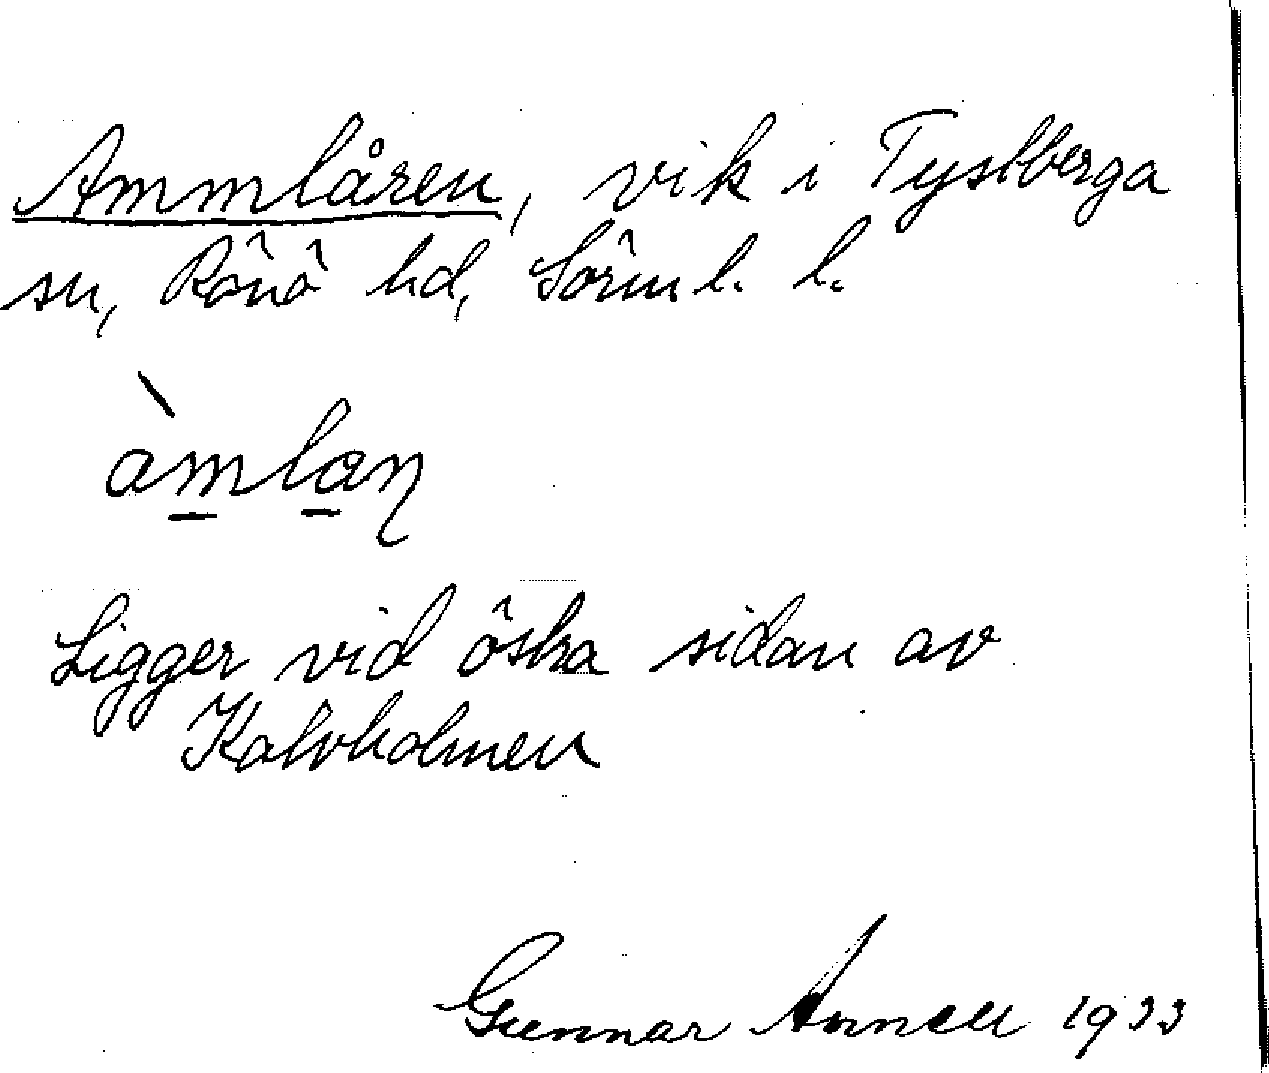 Ammlåren, vik i Tystberga
sn, Rönö hd, Sörml. l.
àmlaɳ
Ligger vid östra sidan av
Kalvholmen
Gunnar 1933